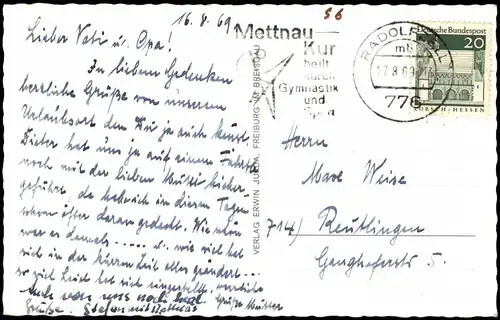 16.8.69
Lieber Vati u. Opa!
In lieben Gedenken
herzliche Grüße von unserem
Urlaubsort den Du ja auch kennst.
Dieter hat uns ja auf einem Fahrt
noch mit der lieben Mutti hierher-
geführt, da habe ich in diesen Tagen
schon öfter daran gedacht. Wie schön
war es damals ..... u. wie viel hat
sich in der kurzen Zeit alles geändert ...
so viel Leid hat sich eingestellt. herzliche
Grüße Mutter
auch von uns noch
Grüße. Stefan mit
VERLAG ERWIN FREIBURG IM BREISGAU
56
Mettnau-
Kur
heilt
durch
Gymnastik
und
RADOLFZELL
17.8.69
776
Deutsche Bundespost
20
LORSCH/HESSEN
Herrn
Max Weise
714) Reutlingen
Ganghoferstr 5.